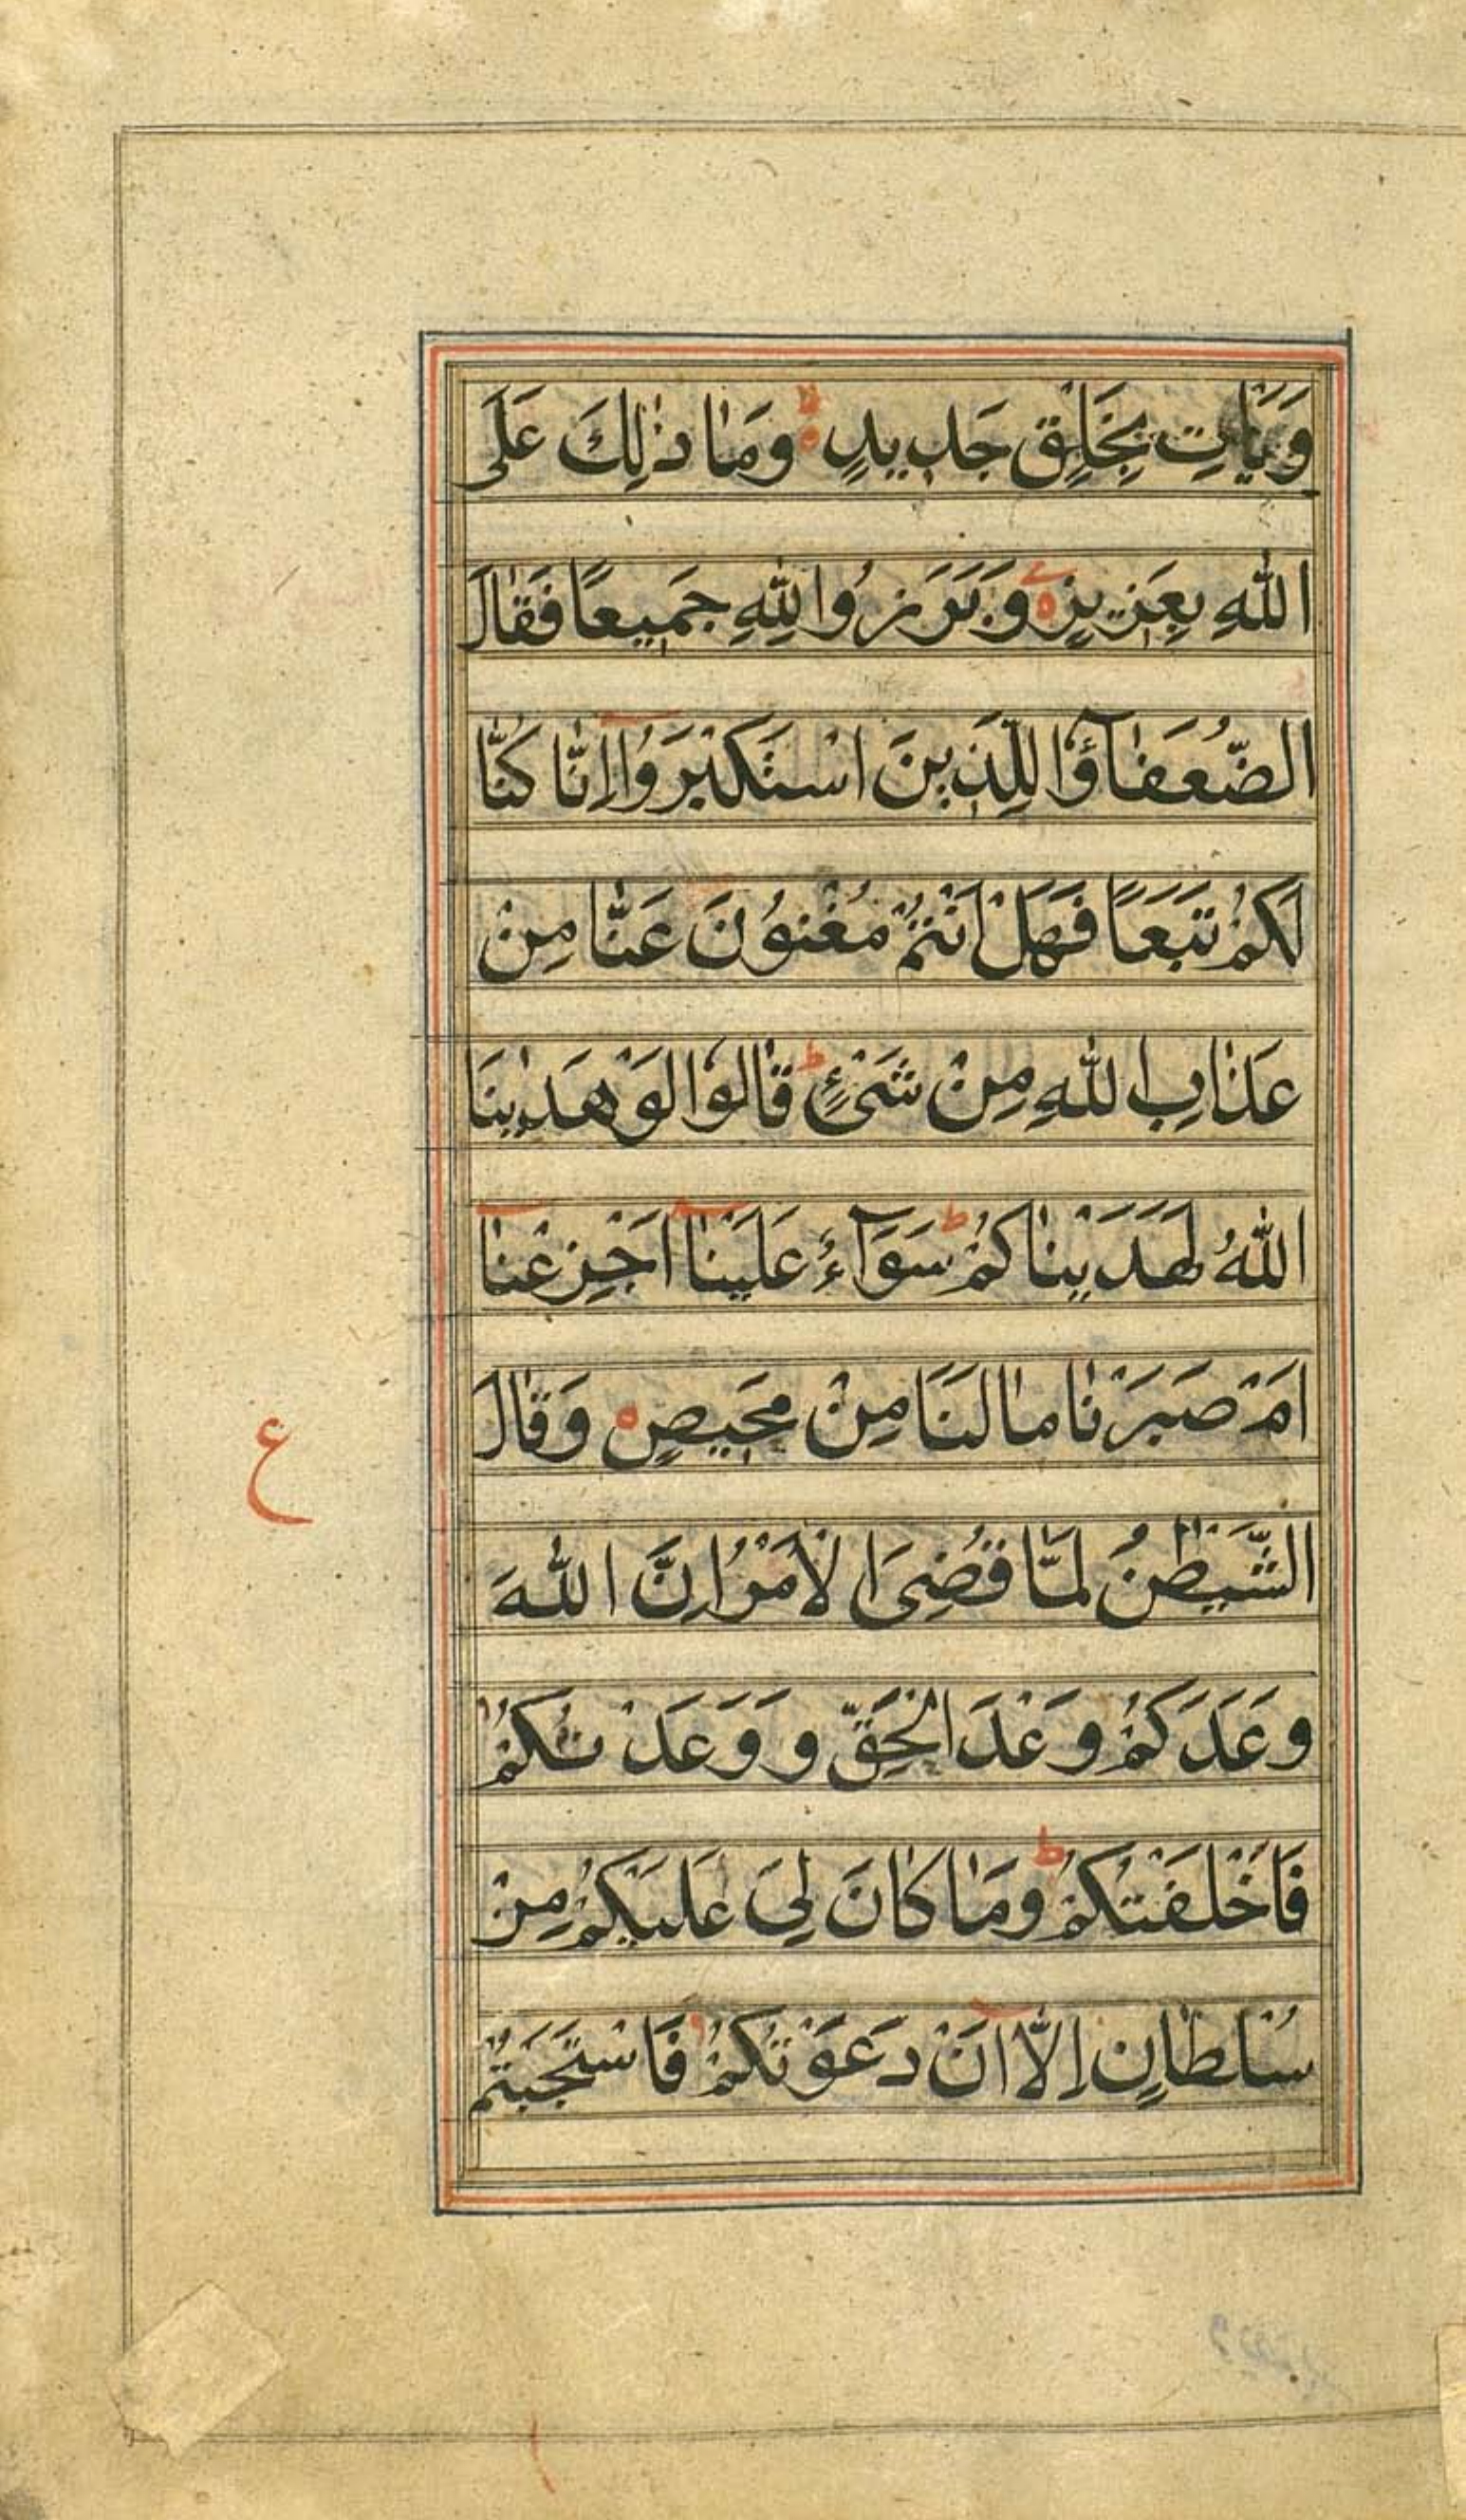 وَيَأْتِ بِخَلْقٍ جَدِيدٍ ۙ۝ وَمَا ذٰلِكَ عَلَى
اللّٰهِ بِعَزِيزٍ ۝ وَبَرَزُوا لِلّٰهِ جَمِيعًا فَقَالَ
الضُّعَفَآؤُا لِلَّذِينَ اسْتَكْبَرُوا اِنَّا كُنَّا
لَكُمْ تَبَعًا فَهَلْ اَنْتُمْ مُغْنُونَ عَنَّا مِنْ
عَذَابِ اللّٰهِ مِنْ شَيْءٍ ط قَالُوا لَوْ هَدٰينَا
اللّٰهُ لَهَدَيْنَاكُمْ ط سَوَآءٌ عَلَيْنَا اَجَزِعْنَا
اَمْ صَبَرْنَا مَا لَنَا مِنْ مَحِيصٍ ۝ وَقَالَ
ع
الشَّيْطٰنُ لَمَّا قُضِيَ الْاَمْرُ اِنَّ اللّٰهَ
وَعَدَكُمْ وَعْدَ الْحَقِّ وَوَعَدْتُكُمْ
فَاَخْلَفْتُكُمْ ط وَمَا كَانَ لِيَ عَلَيْكُمْ مِنْ
سُلْطَانٍ اِلَّا اَنْ دَعَوْتُكُمْ فَاسْتَجَبْتُمْ